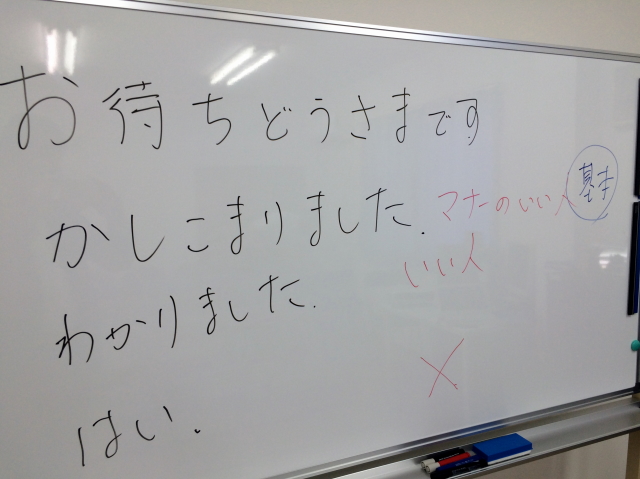 お待ちどうさまです
かしこまりました. マナーのいい人 基本
わかりました. いい人
はい. ×